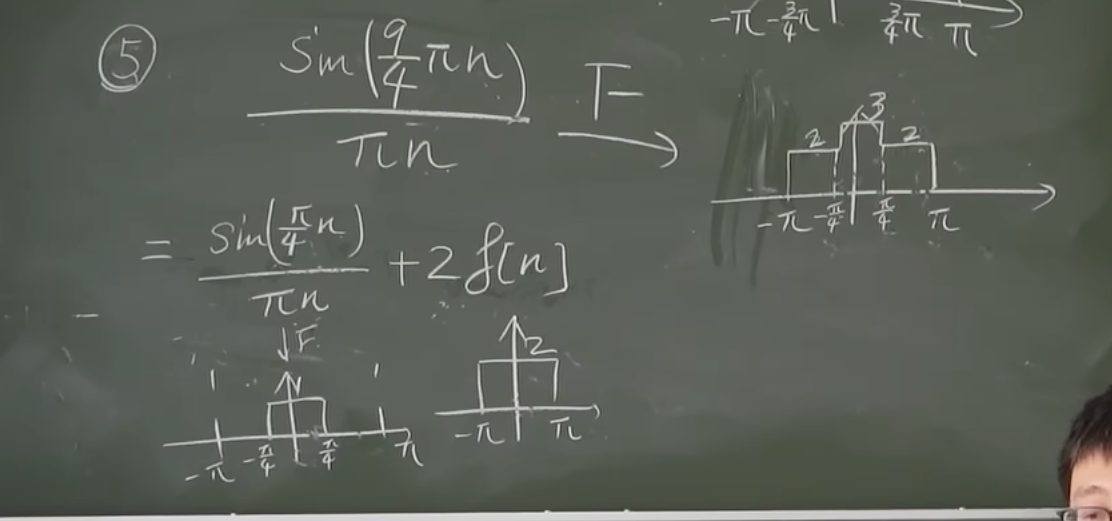 -π -3/4π 3/4π π
⑤ sin(9/4 πn) / πn F→
3
2 2
-π -π/4 π/4 π
= sin(π/4 n) / πn + 2 δ[n]
↓F
2
-π -π/4 π/4 π
-π π